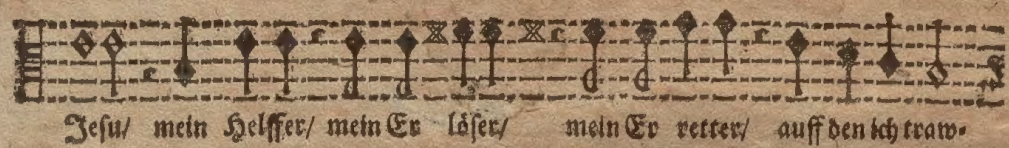 Jesu/ mein Helffer/ mein Er löser/ mein Er retter/ auff den ich traw⸗